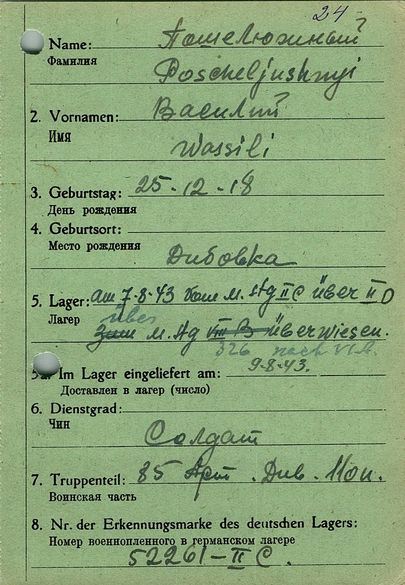 24
Name: Пошелюжный
Фамилия
Poscheljushnyi
2. Vornamen: Василий
Имя
Wassili
3. Geburtstag: 25-12-18
День рождения
4. Geburtsort:
Место рождения
Дубовка
5. Lager: am 7-8-43 vom M. Stg II C über II D
Лагер über
zum M. Stg VIII B überwiesen.
326 nach VI A.
Im Lager eingeliefert am: 9-8-43.
Доставлен в лагер (число)
6. Dienstgrad:
Чин
Солдат
7. Truppenteil: 85 Арт. Див.
Воинская часть
8. Nr. der Erkennungsmarke des deutschen Lagers:
Номер военнопленного в германском лагере
52261-II C.